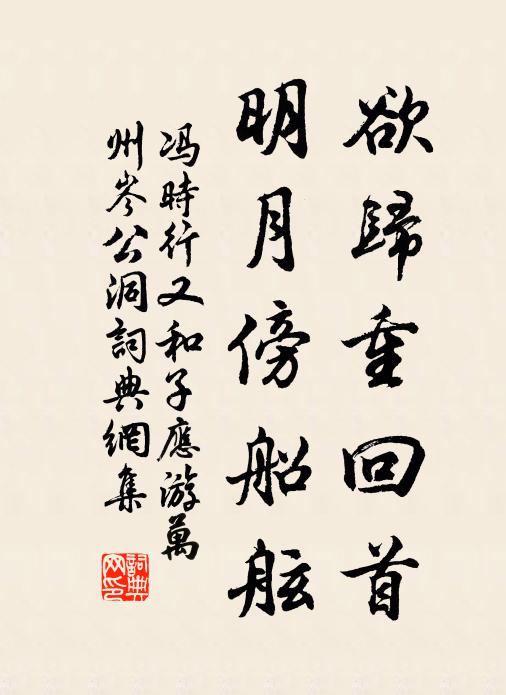 欲歸重回首
明月傍船舷
冯時行又和子應游萬
州岑公洞詞典網集
詞典
网印